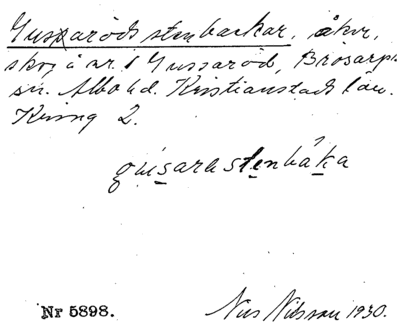 Gussaröds stenbackar, åker,
skog å nr. 1 Gussaröd, Brösarps
sn. Albo hd. Kristianstads län.
Kivng 2.
gusara stenbáka
Nr 5898.
Nils Nilsson 1930.